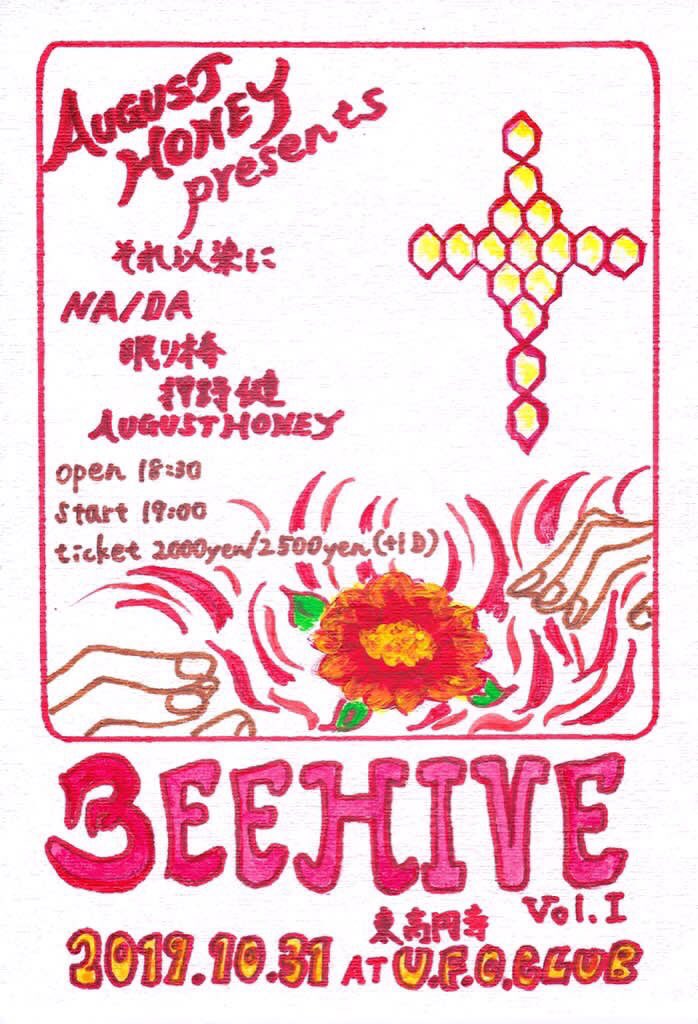 AUGUST
HONEY
presents
それ以染に
NA/DA
眠り棒
押時健
AUGUST HONEY
open 18:30
start 19:00
ticket 2000yen/2500yen(+1D)
BEEHIVE
Vol.I
東高円寺
2019.10.31 AT U.F.O.CLUB